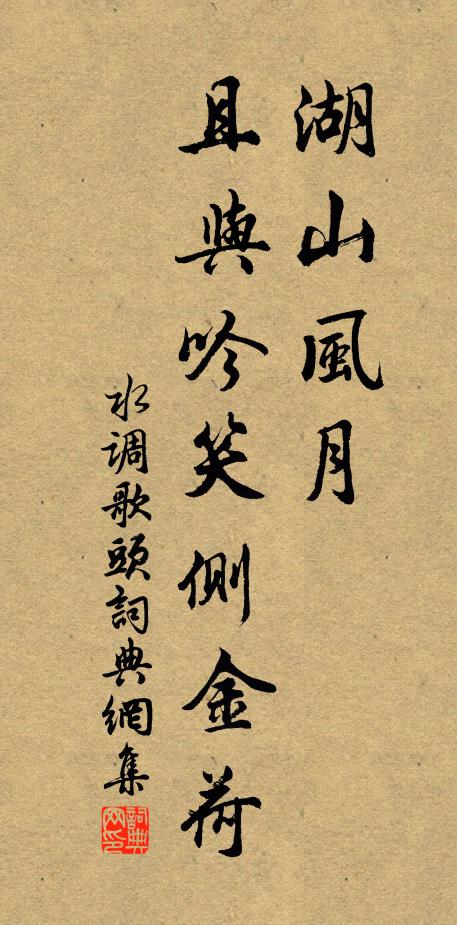 湖山風月
且與吟笑側金荷
水调歌頭詞典網集
詞典网印